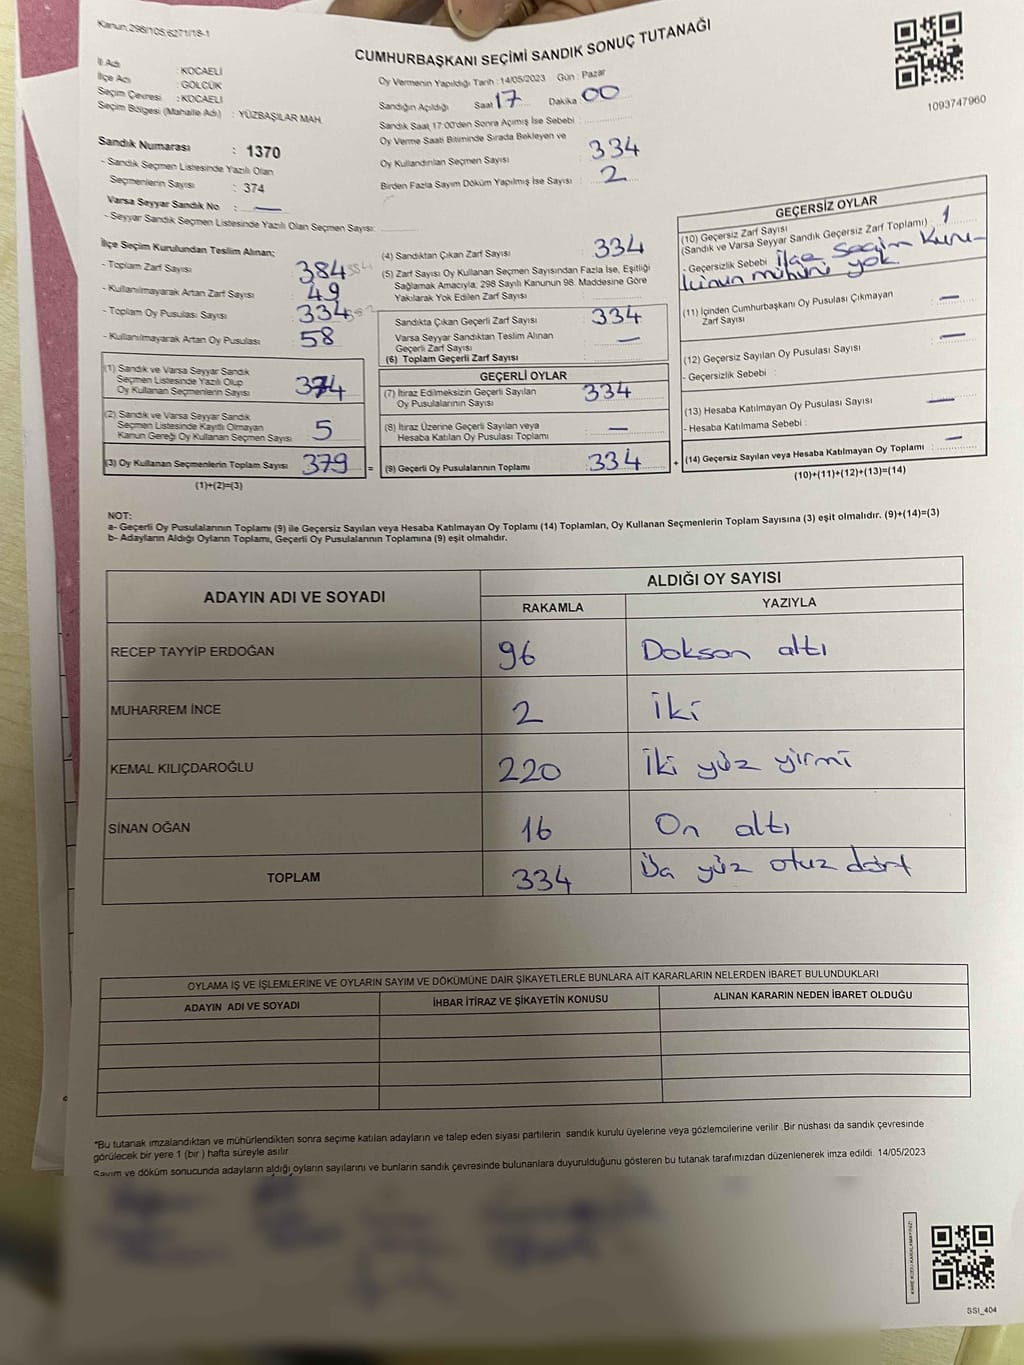 Kanun,298/105,6271/18-1
CUMHURBAŞKANI SEÇİMİ SANDIK SONUÇ TUTANAĞI
1093747960
İl Adı : KOCAELİ
İlçe Adı : GÖLCÜK
Seçim Çevresi : KOCAELİ
Seçim Bölgesi (Mahalle Adı) : YÜZBAŞILAR MAH.
Sandık Numarası : 1370
- Sandık Seçmen Listesinde Yazılı Olan
Seçmenlerin Sayısı : 374
Varsa Seyyar Sandık No : —
- Seyyar Sandık Seçmen Listesinde Yazılı Olan Seçmen Sayısı:
Oy Vermenin Yapıldığı Tarih : 14/05/2023 Gün : Pazar
Sandığın Açıldığı Saat 17 Dakika 00
Sandık Saat 17:00'den Sonra Açımış İse Sebebi :
Oy Verme Saati Bitiminde Sırada Bekleyen ve
Oy Kullandırılan Seçmen Sayısı : 334
Birden Fazla Sayım Döküm Yapılmış İse Sayısı : 2
İlçe Seçim Kurulundan Teslim Alınan;
- Toplam Zarf Sayısı 384
- Kullanılmayarak Artan Zarf Sayısı : 49
- Toplam Oy Pusulası Sayısı : 334
- Kullanılmayarak Artan Oy Pusulası : 58
(1) Sandık ve Varsa Seyyar Sandık
Seçmen Listesinde Yazılı Olup
Oy Kullanan Seçmenlerin Sayısı : 374
(2) Sandık ve Varsa Seyyar Sandık
Seçmen Listesinde Kayıtlı Olmayan
Kanun Gereği Oy Kullanan Seçmen Sayısı : 5
(3) Oy Kullanan Seçmenlerin Toplam Sayısı : 379
(1)+(2)=(3)
(4) Sandıktan Çıkan Zarf Sayısı 334
(5) Zarf Sayısı Oy Kullanan Seçmen Sayısından Fazla İse, Eşitliği
Sağlamak Amacıyla; 298 Sayılı Kanunun 98. Maddesine Göre
Yakılarak Yok Edilen Zarf Sayısı :
Sandıkta Çıkan Geçerli Zarf Sayısı : 334
Varsa Seyyar Sandıktan Teslim Alınan
Geçerli Zarf Sayısı : —
(6) Toplam Geçerli Zarf Sayısı :
GEÇERLİ OYLAR
(7) İtiraz Edilmeksizin Geçerli Sayılan
Oy Pusulalarının Sayısı : 334
(8) İtiraz Üzerine Geçerli Sayılan veya
Hesaba Katılan Oy Pusulası Toplamı : —
= (9) Geçerli Oy Pusulalarının Toplamı : 334
GEÇERSİZ OYLAR
(10) Geçersiz Zarf Sayısı
(Sandık ve Varsa Seyyar Sandık Geçersiz Zarf Toplamı) : 1
- Geçersizlik Sebebi : İlçe Seçim Kuru-
lunun mührü yok
(11) İçinden Cumhurbaşkanı Oy Pusulası Çıkmayan
Zarf Sayısı : —
(12) Geçersiz Sayılan Oy Pusulası Sayısı : —
- Geçersizlik Sebebi :
(13) Hesaba Katılmayan Oy Pusulası Sayısı : —
- Hesaba Katılmama Sebebi :
+ (14) Geçersiz Sayılan veya Hesaba Katılmayan Oy Toplamı : —
(10)+(11)+(12)+(13)=(14)
NOT:
a- Geçerli Oy Pusulalarının Toplamı (9) ile Geçersiz Sayılan veya Hesaba Katılmayan Oy Toplamı (14) Toplamları, Oy Kullanan Seçmenlerin Toplam Sayısına (3) eşit olmalıdır. (9)+(14)=(3)
b- Adayların Aldığı Oyların Toplamı, Geçerli Oy Pusulalarının Toplamına (9) eşit olmalıdır.
ADAYIN ADI VE SOYADI ALDIĞI OY SAYISI
RAKAMLA YAZIYLA
RECEP TAYYİP ERDOĞAN 96 Doksan altı
MUHARREM İNCE 2 iki
KEMAL KILIÇDAROĞLU 220 iki yüz yirmi
SİNAN OĞAN 16 On altı
TOPLAM 334 yüz otuz dört
OYLAMA İŞ VE İŞLEMLERİNE VE OYLARIN SAYIM VE DÖKÜMÜNE DAİR ŞİKAYETLERLE BUNLARA AİT KARARLARIN NELERDEN İBARET BULUNDUKLARI
ADAYIN ADI VE SOYADI İHBAR İTİRAZ VE ŞİKAYETİN KONUSU ALINAN KARARIN NEDEN İBARET OLDUĞU
*Bu tutanak imzalandıktan ve mühürlendikten sonra seçime katılan adayların ve talep eden siyasi partilerin sandık kurulu üyelerine veya gözlemcilerine verilir .Bir nushası da sandık çevresinde
görülecek bir yere 1 (bir ) hafta süreyle asılır.
Sayım ve döküm sonucunda adayların aldığı oyların sayılarını ve bunların sandık çevresinde bulunanlara duyurulduğunu gösteren bu tutanak tarafımızdan düzenlenerek imza edildi. 14/05/2023
SSI_404